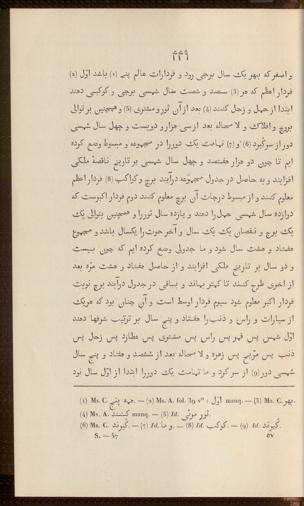 ٤٤٩
و اصغر که بهر یک سال برجی رود و فردارات عالم پنج (1) باشد اوّل (2)
فردار اعظم که هر (3) سیصد و شصت سال شمسی برجی و کوکبی دهند
ابتدا از حمل و زحل کنند (4) بعد از آن ثور و مشتری (5) و همچنین بر توالی
بروج و افلاک و لا محاله بعد از سی هزار و دویست و چهل سال شمسی
دور از سر گیرد (6) و (7) تمامت یک دور را در مجموعه و مبسوط وضع کرده
ایم تا چون دو هزار هفتصد و چهل سال شمسی بر تاریخ ناقصهٔ ملکی
افزایند و به حاصل در جدول مجموعه درآیند برج و کواکب (8) فردار اعظم
معلوم کنند و از مبسوط درجات آن برج معلوم کنند دوم فردار اکبرست که
دوازده سال شمسی حمل را دهند و یازده سال ثور را و همچنین بتوالی یک
یک برج و نقصان یک یک سال و آخر حوت را یکسال باشد و مجموع
هفتاد و هشت سال شود و ما جدولی وضع کرده ایم که چون بیست
و دو سال بر تاریخ ملکی افزایند و از حاصل هفتاد و هشت مرّه بعد
از اخری طرح کنند تا کمتر بماند و بباقی در جدول درآیند برج نوبت
فردار اکبر معلوم شود سیوم فردار اوسط است و آن چنان بود که هر یک
از سیارات و راس و ذنب را هفتاد و پنج سال بر ترتیب شرفها دهند
اوّل شمس پس قمر پس راس پس مشتری پس عطارد پس زحل پس
ذنب پس مرّیخ پس زهره و لا محاله بعد از ششصد و هفتاد و پنج سال
شمسی دور (9) از سر کرد و ما تمامت یک دور را ابتدا از اوّل سال نود
(1) Ms. C. پنج — (2) Ms. A. fol. 39 v° : اوّل manq. — (3) Ms. C. بهر.
(4) Ms. A. کنند manq. — (5) Id. ثور
(6) Ms. C. گیرند. — (7) Id. و ما. — (8) Id. کوکب. — (9) Id. گیرند.
S. — 57
٥٧